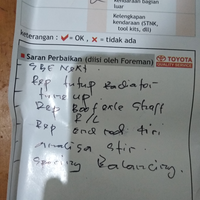 kendaraan bagian
luar
Kelengkapan
kendaraan (STNK,
tool kits, dll)
Keterangan : ✓ = OK , × = tidak ada
Saran Perbaikan (diisi oleh Foreman)
TOYOTA
QUALITY SERVICE
SBE Next.
Rep tutup Radiator
tune up
Rep Boot axle
R/L
Rep end rod kiri
Stir.
Balancing.